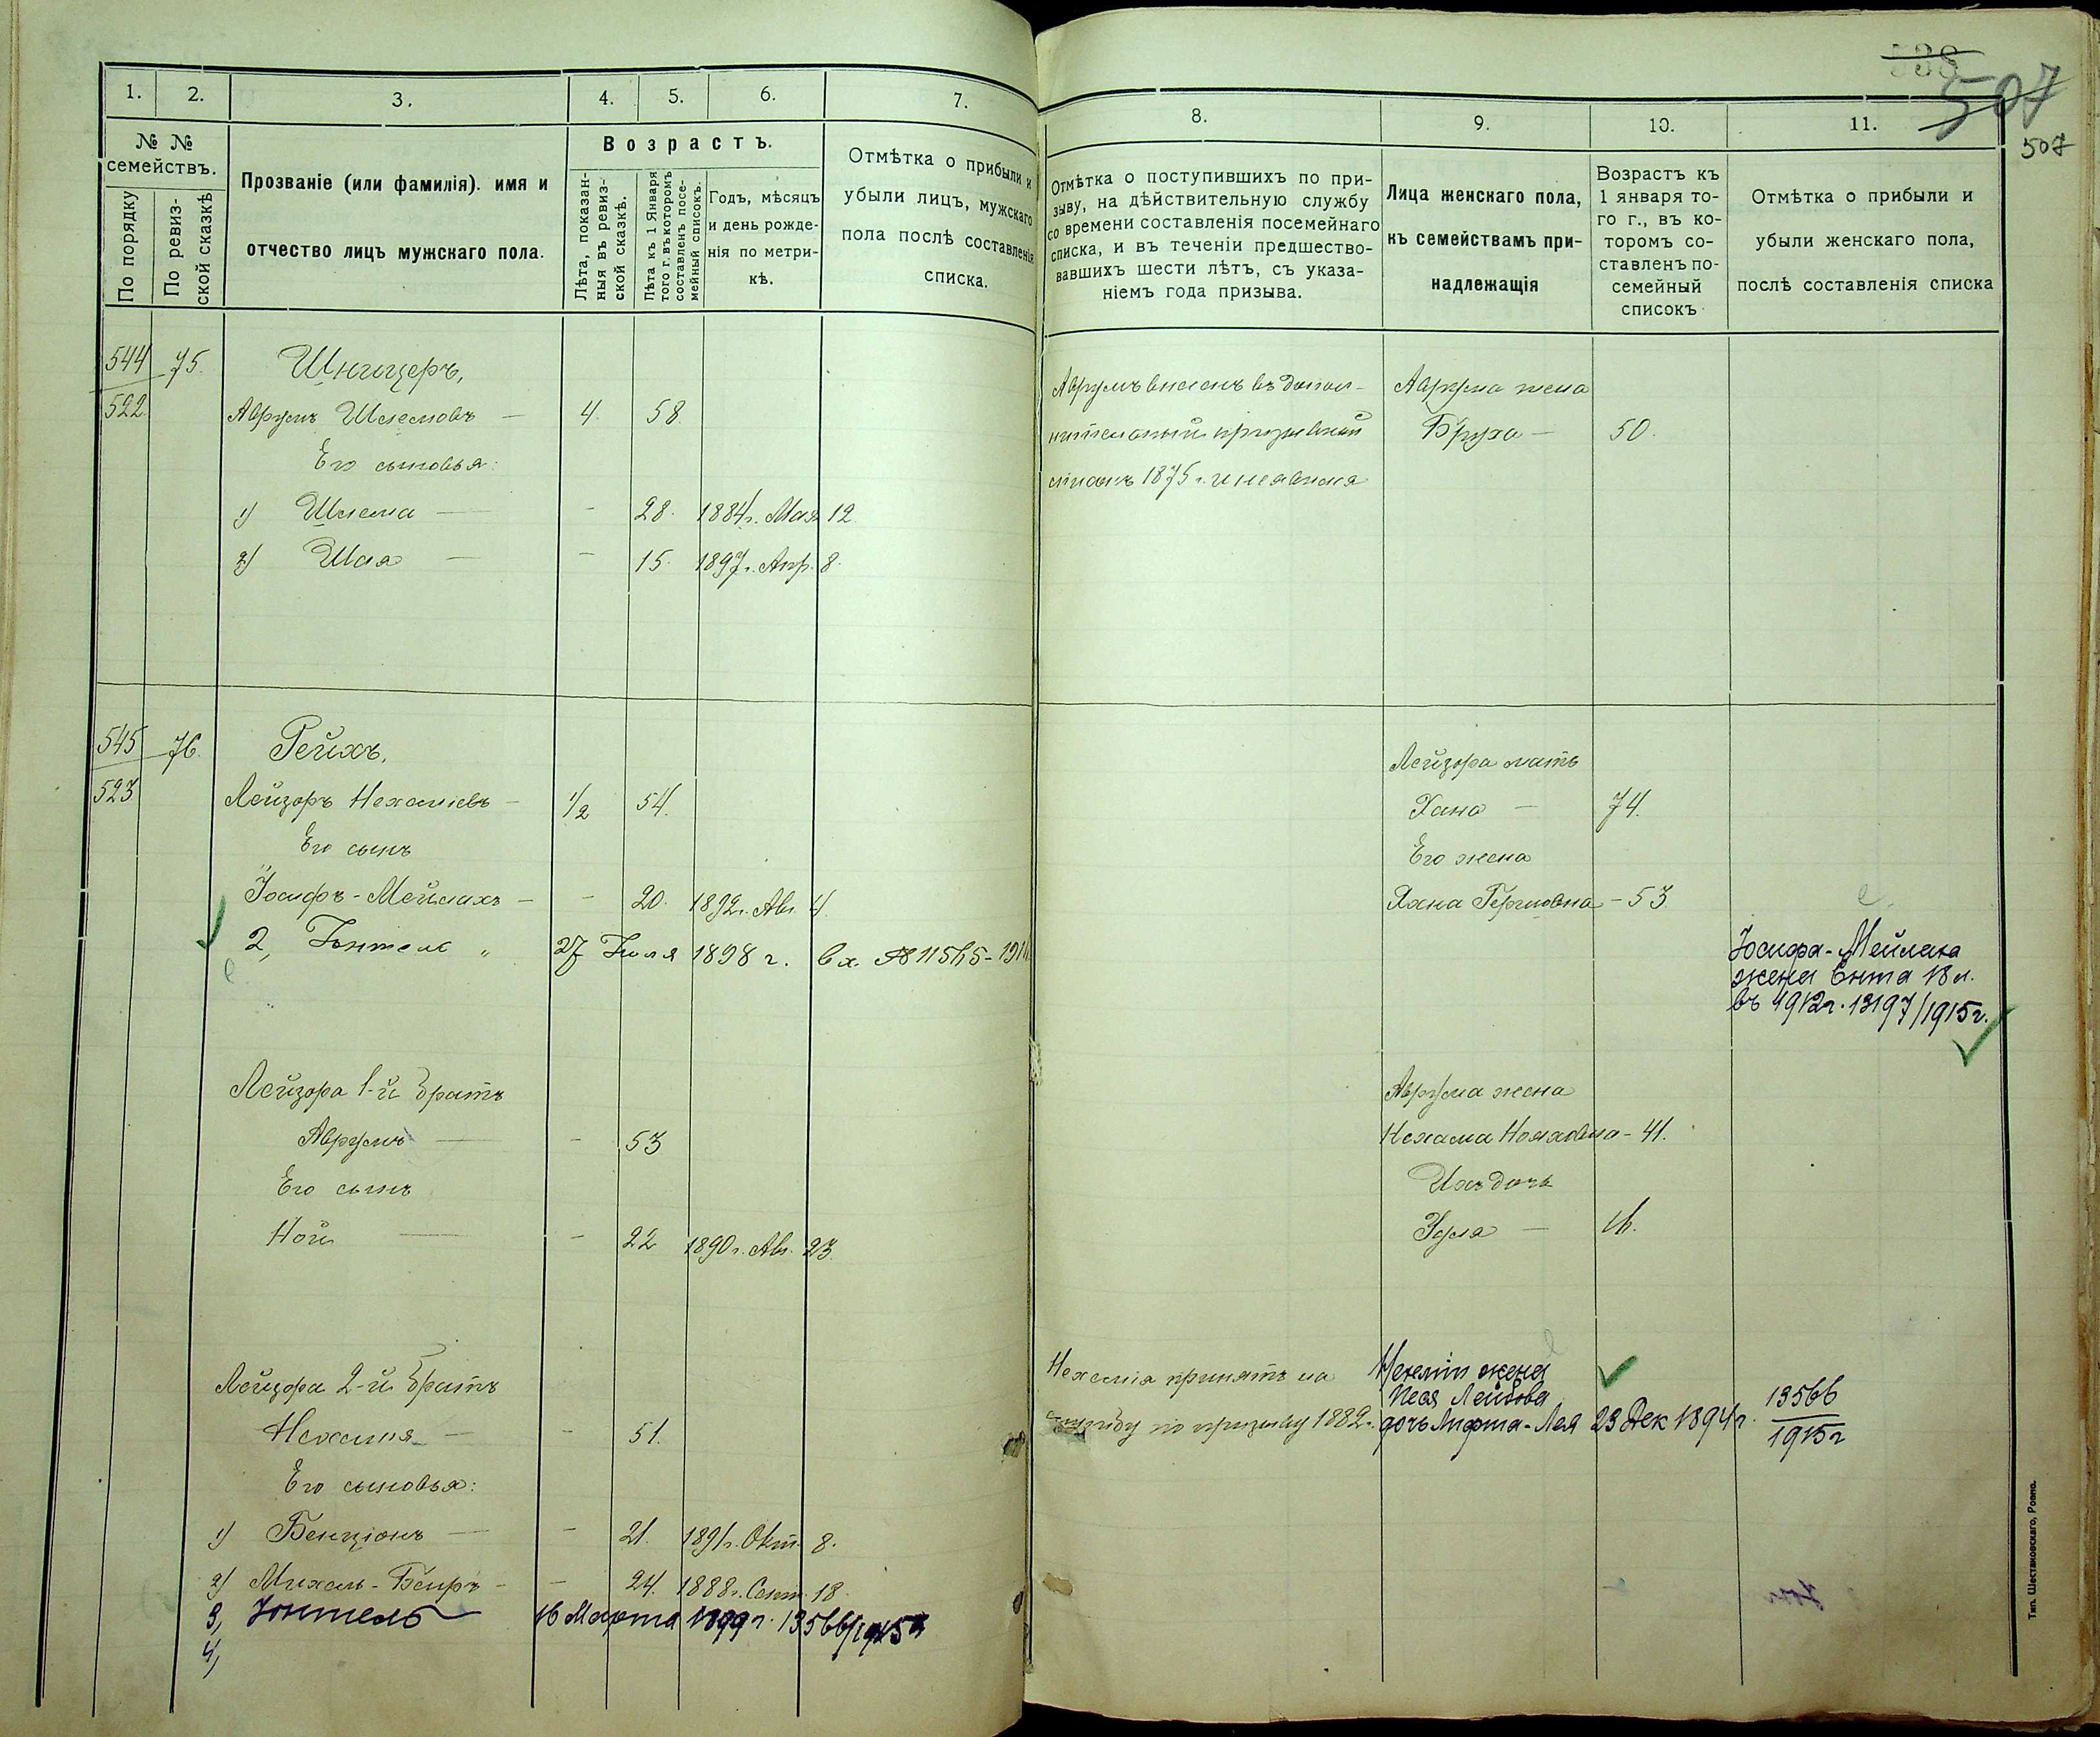 1.
2.
3.
4.
5.
6.
7.
№ №
семействъ.
По порядку
По ревиз-
ской сказкѣ
Прозваніе (или фамилія). имя и
отчество лицъ мужскаго пола.
Возрастъ.
Лѣта, показан-
ныя въ ревиз-
ской сказкѣ.
Лѣта къ 1 Января
того г. въ которомъ
составленъ посе-
мейный списокъ.
Годъ, мѣсяцъ
и день рожде-
нія по метри-
кѣ.
Отмѣтка о прибыли и
убыли лицъ, мужскаго
пола послѣ составленія
списка.
544 75.
Шницеръ,
522.
Аврумъ Шлемовъ — 4. 58.
Его сыновья:
1) Шлема — - 28. 1884 г. Мая 12.
2) Шая — - 15. 1897 г. Апр. 8.
545 76.
Рейхъ,
523
Лейзоръ Нехаміевъ — 1/2 54.
Его сынъ
Іосифъ-Мейлахъ — - 20. 1892 г. Авг. 4.
2, Іонтель „ 27 Іюля 1898 г. вх. № 11565-1911
Лейзора 1-й братъ
Аврумъ — - 53
Его сынъ
Ной — - 22 1890 г. Авг. 23.
Лейзора 2-й братъ
Нехамія — - 51.
Его сыновья:
1) Бенціонъ — - 21. 1891 г. Окт. 8.
2) Михель-Беиръ - - 24. 1888 г. Сент. 18
3, Іонтель 16 Марта 1899 г. 13566/1915 г
4,
538
507
507
8.
9.
10.
11.
Отмѣтка о поступившихъ по при-
зыву, на дѣйствительную службу
со времени составленія посемейнаго
списка, и въ теченіи предшество-
вавшихъ шести лѣтъ, съ указа-
ніемъ года призыва.
Лица женскаго пола,
къ семействамъ при-
надлежащія
Возрастъ къ
1 января то-
го г., въ ко-
торомъ со-
ставленъ по-
семейный
списокъ
Отмѣтка о прибыли и
убыли женскаго пола,
послѣ составленія списка
Аврумъ внесенъ въ допол-
нительный призывной
списокъ 1875 г. и неявился
Аврума жена
Бруха — 50.
Лейзора мать
Хана — 74.
Его жена
Хана Гершовна - 53
Іосифа-Мейлаха
жена Ента 18 л.
въ 1912 г. 13197/1915 г.
Аврума жена
Нехама Нояховна - 41.
Ихъ дочь
Эдля — 16.
Нехамія принятъ на
службу по призыву 1882 г.
Нехеміи жена
Песя Лейбова
дочь Лифша-Лея 23 Дек 1894 г. 13566
1915 г
Тип. Шестаковскаго, Ровно.